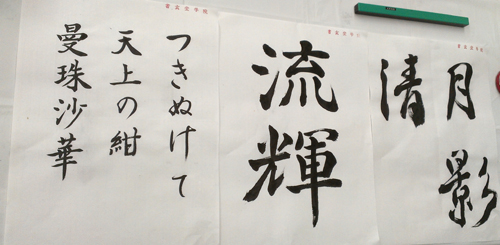 月影
清
流輝
つきぬけて
天上の紺
曼珠沙華